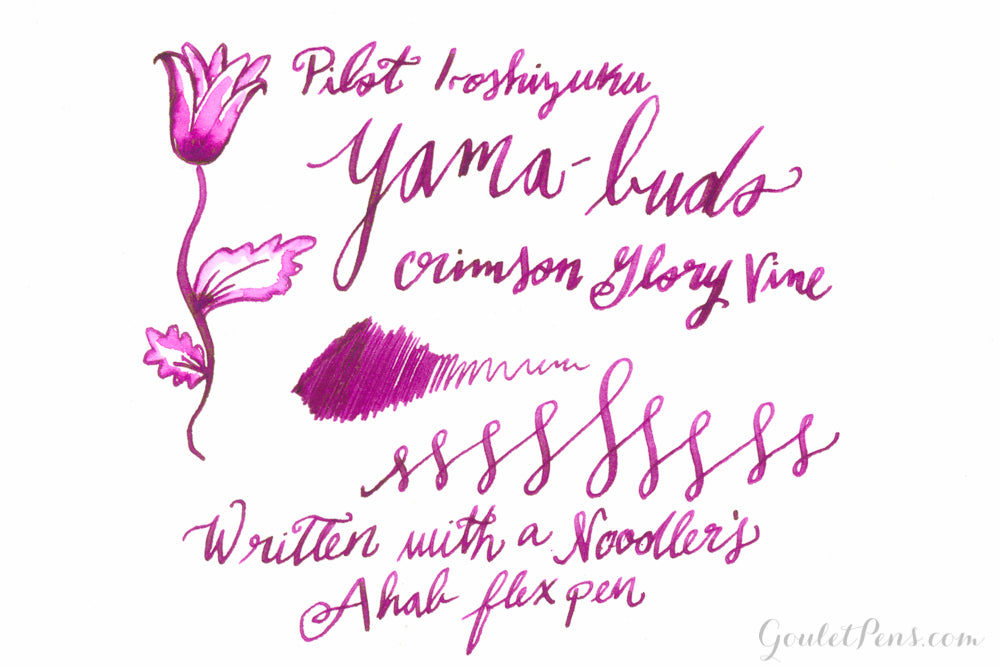 Pilot Iroshizuku
Yama-budo
Crimson Glory Vine
ssssSssss
Written with a Noodler's
Ahab flex pen
GouletPens.com